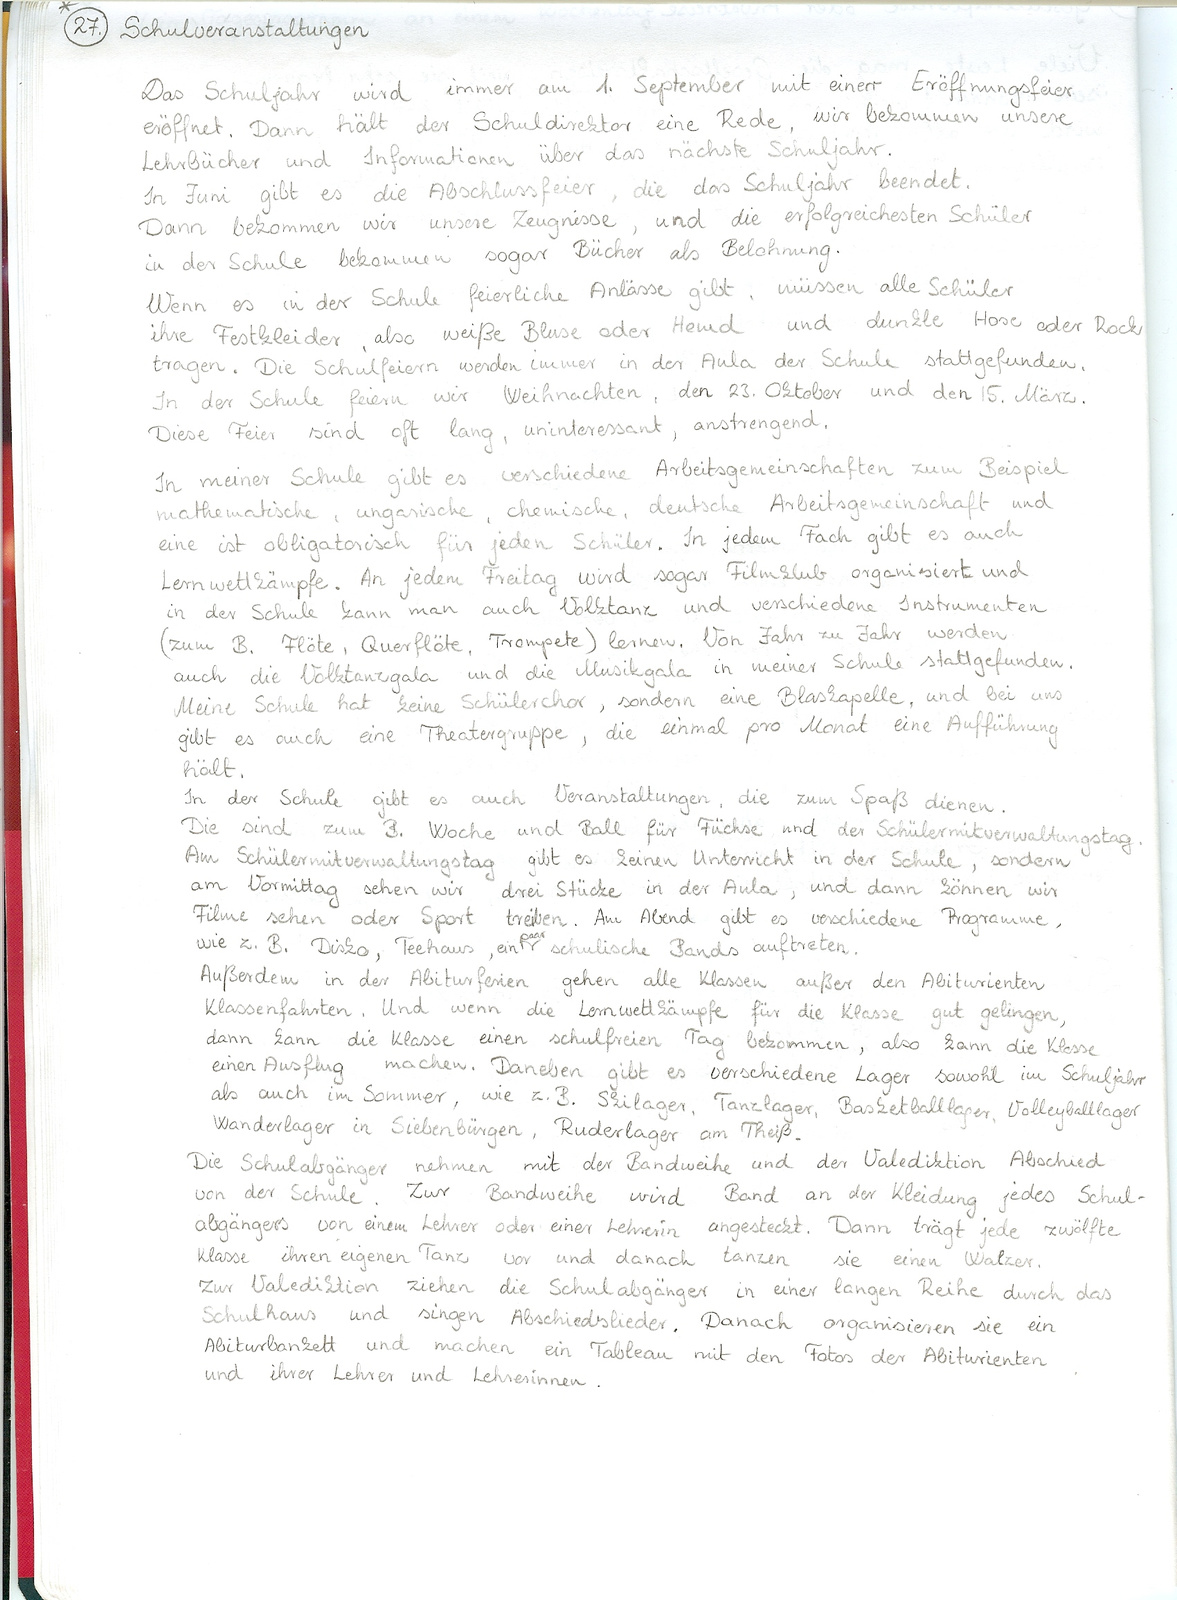 *
27. Schulveranstaltungen
Das Schuljahr wird immer am 1. September mit einer Eröffnungsfeier
eröffnet. Dann hält der Schuldirektor eine Rede, wir bekommen unsere
Lehrbücher und Informationen über das nächste Schuljahr.
In Juni gibt es die Abschlussfeier, die das Schuljahr beendet.
Dann bekommen wir unsere Zeugnisse, und die erfolgreichesten Schüler
in der Schule bekommen sogar Bücher als Belohnung.
Wenn es in der Schule feierliche Anlässe gibt, müssen alle Schüler
ihre Festkleider, also weiße Bluse oder Hemd und dunkle Hose oder Rock
tragen. Die Schulfeiern werden immer in der Aula der Schule stattgefunden.
In der Schule feiern wir Weihnachten, den 23. Oktober und den 15. März.
Diese Feier sind oft lang, uninteressant, anstrengend.
In meiner Schule gibt es verschiedene Arbeitsgemeinschaften zum Beispiel
mathematische, ungarische, chemische, deutsche Arbeitsgemeinschaft und
eine ist obligatorisch für jeden Schüler. In jedem Fach gibt es auch
Lernwettkämpfe. An jedem Freitag wird sogar Filmklub organisiert und
in der Schule kann man auch Volktanz und verschiedene Instrumenten
(zum B. Flöte, Querflöte, Trompete) lernen. Von Jahr zu Jahr werden
auch die Volktanzgala und die Musikgala in meiner Schule stattgefunden.
Meine Schule hat keine Schülerchor, sondern eine Blaskapelle, und bei uns
gibt es auch eine Theatergruppe, die einmal pro Monat eine Aufführung
hält.
In der Schule gibt es auch Veranstaltungen, die zum Spaß dienen.
Die sind zum B. Woche und Ball für Füchse und der Schülermitverwaltungstag.
Am Schülermitverwaltungstag gibt es keinen Unterricht in der Schule, sondern
am Vormittag sehen wir drei Stücke in der Aula, und dann können wir
Filme sehen oder Sport treiben. Am Abend gibt es verschiedene Programme,
wie z. B. Disko, Teehaus, ein paar schulische Bands auftreten.
Außerdem in der Abiturferien gehen alle Klassen außer den Abiturienten
Klassenfahrten. Und wenn die Lernwettkämpfe für die Klasse gut gelingen,
dann kann die Klasse einen schulfreien Tag bekommen, also kann die Klasse
einen Ausflug machen. Daneben gibt es verschiedene Lager sowohl im Schuljahr
als auch im Sommer, wie z. B. Skilager, Tanzlager, Basketballlager, Volleyballlager
Wanderlager in Siebenbürgen, Ruderlager am Theiß.
Die Schulabgänger nehmen mit der Bandweihe und der Valediktion Abschied
von der Schule. Zur Bandweihe wird Band an der Kleidung jedes Schul-
abgängers von einem Lehrer oder einer Lehrerin angesteckt. Dann trägt jede zwölfte
Klasse ihren eigenen Tanz vor und danach tanzen sie einen Walzer.
Zur Valediktion ziehen die Schulabgänger in einer langen Reihe durch das
Schulhaus und singen Abschiedslieder. Danach organisieren sie ein
Abiturbankett und machen ein Tableau mit den Fotos der Abiturienten
und ihrer Lehrer und Lehrerinnen.